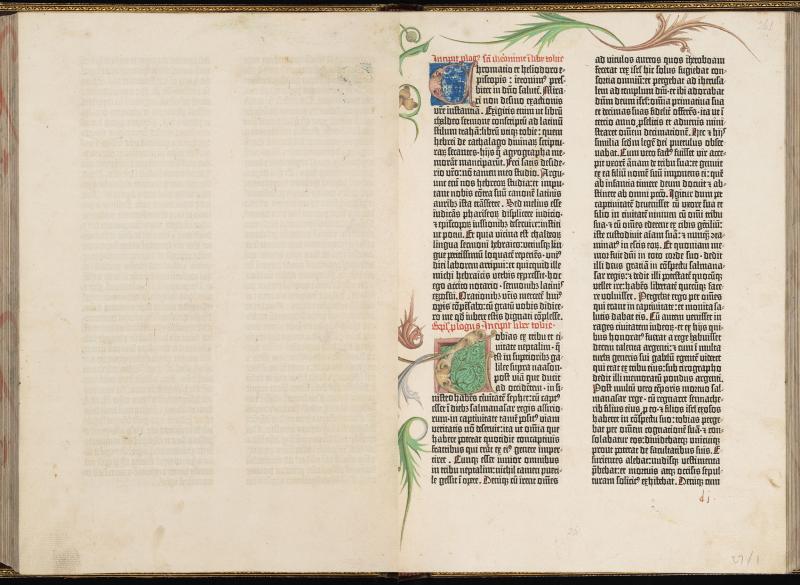 Incipit plogꝰ sci iheronimi ĩ libꝝ tobie
Chromatio et heliodoro e-
piscopis : ieronimꝰ pres-
biter in dño salutē. Mira-
ri non desino exactionis
vre instantiā. Exigitis enim ut librū
chaldeo sermone conscriptū ad latinū
stilum traham : librū utiqz tobie : quem
hebrei de cathalago divinaꝝ scriptu-
raꝝ secantes · hijs q̄ agyographa me-
morāt manciparūt. Feci satis deside-
rio vr̄o : nō tamen meo studio. Argu-
unt em̄ nos hebreoꝝ studia : et impu-
tant nobis cōtra suū canonē latinis
auribꝫ ista trāsferre. Sed melius esse
iudicās phariseoꝝ displicere iudicio ·
et episcopoꝝ iussionibꝫ deservire : institi
ut potui. Et quia vicina est chaldeoꝝ
lingua sermoni hebraico : utriusqz lin-
gue peritissimū loquacē reperiēs · uniꝰ
diei laborem arripui : et quicquid ille
michi hebraicis verbis expressit · hoc
ego accito notario · sermonibꝫ latinis
exposui. Orationibꝫ vr̄is mercedē huiꝰ
opis cōpēsabo : cū gratū vobis didice-
ro me qd̄ iubere estis dignati cōplesse.
Explic plogus · Incipit liber tobie ·
Tobias ex tribu et ci-
uitate neptalim · q̄
est in supioribꝫ ga-
lilee supra naason ·
post viā que ducit
ad occidētem · in si-
nistro habēs civitatē sephet : cū captꝰ
esset ī diebꝫ salmanasar regis assirio-
rum · in captivitate tamē positꝰ viam
veritatis nō deseruit : ita ut omia que
habere poterat quotidie concaptivis
fratribus qui erāt ex eiꝰ genere imper-
tiret. Cunqz esset iunior omnibus
in tribu neptalim : nichil tamen pueri-
le gessit ī opere. Deniqz cū irent omēs
ad vitulos aureos quos iheroboam
fecerat rex isrl̄ hic solus fugiebat con-
sortia omniū : et pergebat ad iherusa-
lem ad templum dñi · et ibi adorabat
dñm deum isrl̄ : omia primitiva sua
et decimas suas fidelit̄ offerēs · ita ut ī
tercio anno pselitis et advenis mini-
straret omēm decimationē. Hec et hijs
similia sedm̄ legē dei puerulus obser-
vabat. Cum vero factꝰ fuisset vir acce-
pit uxorē annam de tribu sua : et genuit
ex ea filiū nomē suū imponens ei : quē
ab infantia timere deum docuit et ab-
stinere ab omni pctō. Igitur dum per
captivitatē devenisset cū uxore sua et
filio in civitatē niniven cū omī tribu
sua · et cū omēs ederent ex cibis gētiliū :
iste custodivit aīam suā : et nunqz̄ cōta-
minatꝰ in escis eoꝝ. Et quoniam me-
mor fuit dñi in toto corde suo · dedit
illi deus gratiā in cōspectu salmana-
sar regis : et dedit illi potestatē quocūqz
vellet ire : habēs libertatē quecūqz face-
re voluisset. Pergebat ergo per omēs
qui erant in captivitate : et monita sa-
lutis dabat eis. Cū autem venisset in
rages civitatem indeoꝝ · et ex hijs qui-
bus honoratꝰ fuerat a rege habuisset
decem talenta argenti : et cum ī multa
turba generis sui gabelū egentē videret
qui erat ex tribu eius : sub cirographo
dedit illi memoratū pondus argenti.
Post multū vero tēporis mortuo sal-
manasar rege · cū regnaret sennache-
rib filius eius p eo · et filios isrl̄ exosos
haberet in cōspectu suo : tobias perge-
bat per omēm cognationē suā · et con-
solabatur eos : dividebatqz unicuiqz
prout poterat de facultatibus suis. E-
surientes alebat : nudisqz vestimenta
p̄bebat : et mortuis atqz occisis sepul-
turam solicitꝰ exhibebat. Deniqz cum